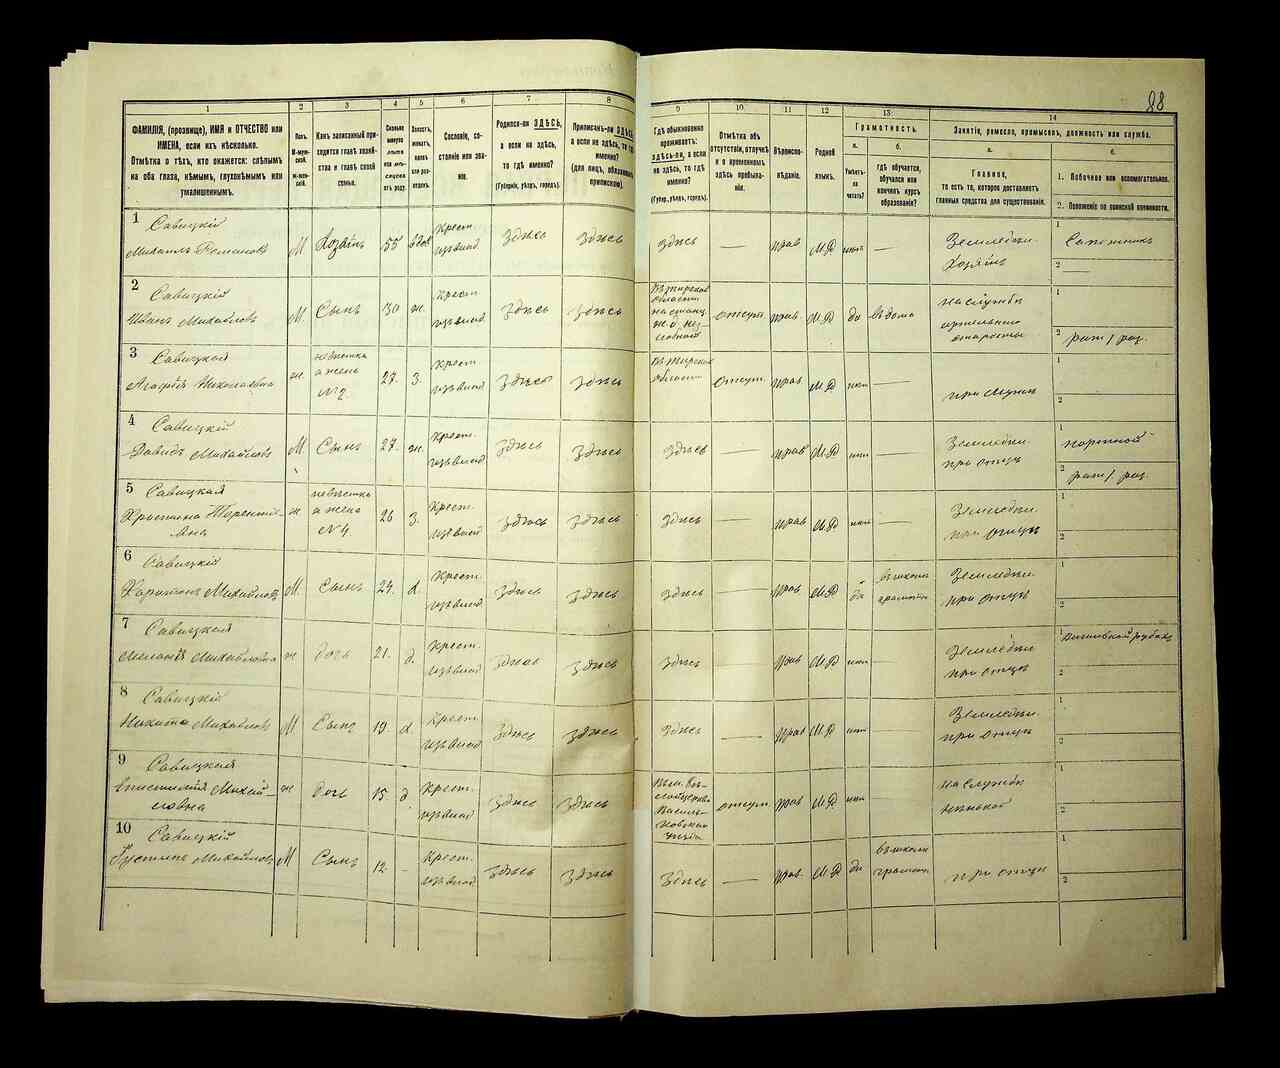 88
1 2 3 4 5 6 7 8 9 10 11 12 13 14
ФАМИЛІЯ, (прозвище), ИМЯ и ОТЧЕСТВО или
ИМЕНА, если ихъ нѣсколько.
Отмѣтка о тѣхъ, кто окажется: слѣпымъ
на оба глаза, нѣмымъ, глухонѣмымъ или
умалишеннымъ.
Полъ.
М-мужской.
Ж-женскій.
Какъ записанный приходится главѣ хозяйства и главѣ своей
семьи.
Сословіе, состояніе или званіе.
Родился-ли ЗДѢСЬ,
а если не здѣсь,
то гдѣ именно?
(Губернія, уѣздъ, городъ).
Приписанъ-ли ЗДѢСЬ,
а если не здѣсь, то гдѣ
именно?
(для лицъ, обязанныхъ
припиской).
Гдѣ обыкновенно
проживаетъ:
здѣсь-ли, а если
не здѣсь, то гдѣ
именно?
(Губер., уѣздъ, городъ).
Отмѣтка объ
отсутствіи, отлучкѣ
и о временномъ
здѣсь пребываніи.
Вѣроисповѣданіе.
Родной
языкъ.
Грамотность.
а.
Умѣетъ-ли
читать?
б.
гдѣ обучается,
обучался или
кончилъ курсъ
образованія?
Занятіе, ремесло, промыселъ, должность или служба.
а.
Главное,
то есть то, которое доставляетъ
главныя средства для существованія.
б.
1. Побочное или вспомогательное.
2. Положеніе по воинской повинности.
1 Савицкій
Михаилъ Романовъ М Хозяинъ 55 вдов Крест. изъ влад Здѣсь Здѣсь Здѣсь — прав М.Р нѣт — Земледѣл. Хозяинъ 1 Сапожникъ 2 —
2 Савицкій
Иванъ Михайловъ М. Сынъ 30 ж. Крест. изъ влад Здѣсь Здѣсь отсут. прав. М.Р да на службѣ старосты 1 2 рат 1 раз.
3 Савицкая
Агафія Николаевна ж. невѣстка а жена №2 27. з. Крест. изъ влад Здѣсь Здѣсь области отсут. прав М.Р нѣт — при мужѣ 1 2
4 Савицкій
Давидъ Михайловъ М. Сынъ 27. ж. Крест. изъ влад. Здѣсь Здѣсь Здѣсь — прав М.Р нѣт — Земледѣл. при отцѣ 1 портной 2 рат 1 раз.
5 Савицкая
Христина ж невѣстка а жена №4 26 з. Крест. изъ влад Здѣсь Здѣсь Здѣсь — прав М.Р нѣт — Земледѣл. при отцѣ 1 2
6 Савицкій
Харитонъ Михайловъ М. Сынъ 24. х. Крест. изъ влад. Здѣсь Здѣсь Здѣсь — прав М.Р да въ школѣ грамоты Земледѣл. при отцѣ 1 2
7 Савицкая
Меланія Михайловна ж дочь 21. д. Крест. изъ влад Здѣсь Здѣсь Здѣсь — прав М.Р нѣт — Земледѣл. при отцѣ 1 2
8 Савицкій
Никита Михайловъ М Сынъ 19. х. Крест. изъ влад Здѣсь Здѣсь Здѣсь — прав М.Р нѣт — Земледѣл. при отцѣ 1 2
9 Савицкая
Михайловна ж дочь 15 д Крест. изъ влад Здѣсь Здѣсь отсут прав М.Р нѣт на службѣ 1 2
10 Савицкій
Густинъ Михайловъ М Сынъ 12. - Крест. изъ влад. Здѣсь Здѣсь Здѣсь — прав. М.Р да въ школѣ грамоты при отцѣ 1 2